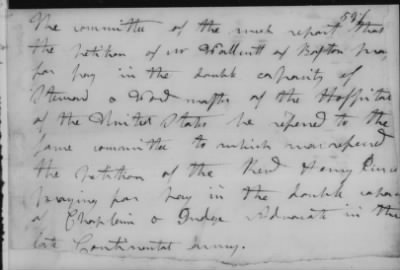 The committee of the week report that
the petition of Mr Wallcutt of Boston pray
for pay in the double capacity of
Steward & Ward master of the Hospital
of the United States be referred to the
same committee to which was referred
the petition of the Revd Henry
praying for pay in the double capac
of Chaplain & Judge Advocate in the
late Continental Army.